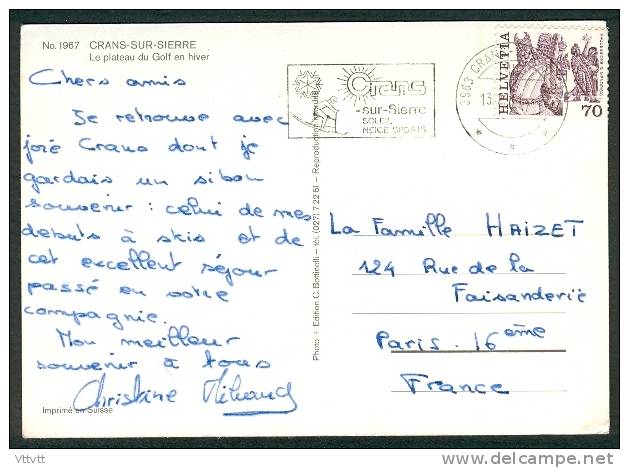 No. 1967 CRANS-SUR-SIERRE
Le plateau du Golf en hiver
Chers amis
Je retrouve avec
joie Crans dont je
gardais un si bon
souvenir : celui de mes
débuts à skis et de
cet excellent séjour
passé en votre
compagnie.
Mon meilleur
souvenir à tous
Christine
Imprimé en Suisse
Photo + Edition C. Bottinelli – tél. (027) 7 22 61 – Reproduction interdite
Crans
-sur-Sierre
SOLEIL
NEIGE SPORTS
3963 CRANS
13.
HELVETIA
70
La Famille HAIZET
124 Rue de la
Faisanderie
Paris. 16ème
France
Vttvtt
delcampe.net